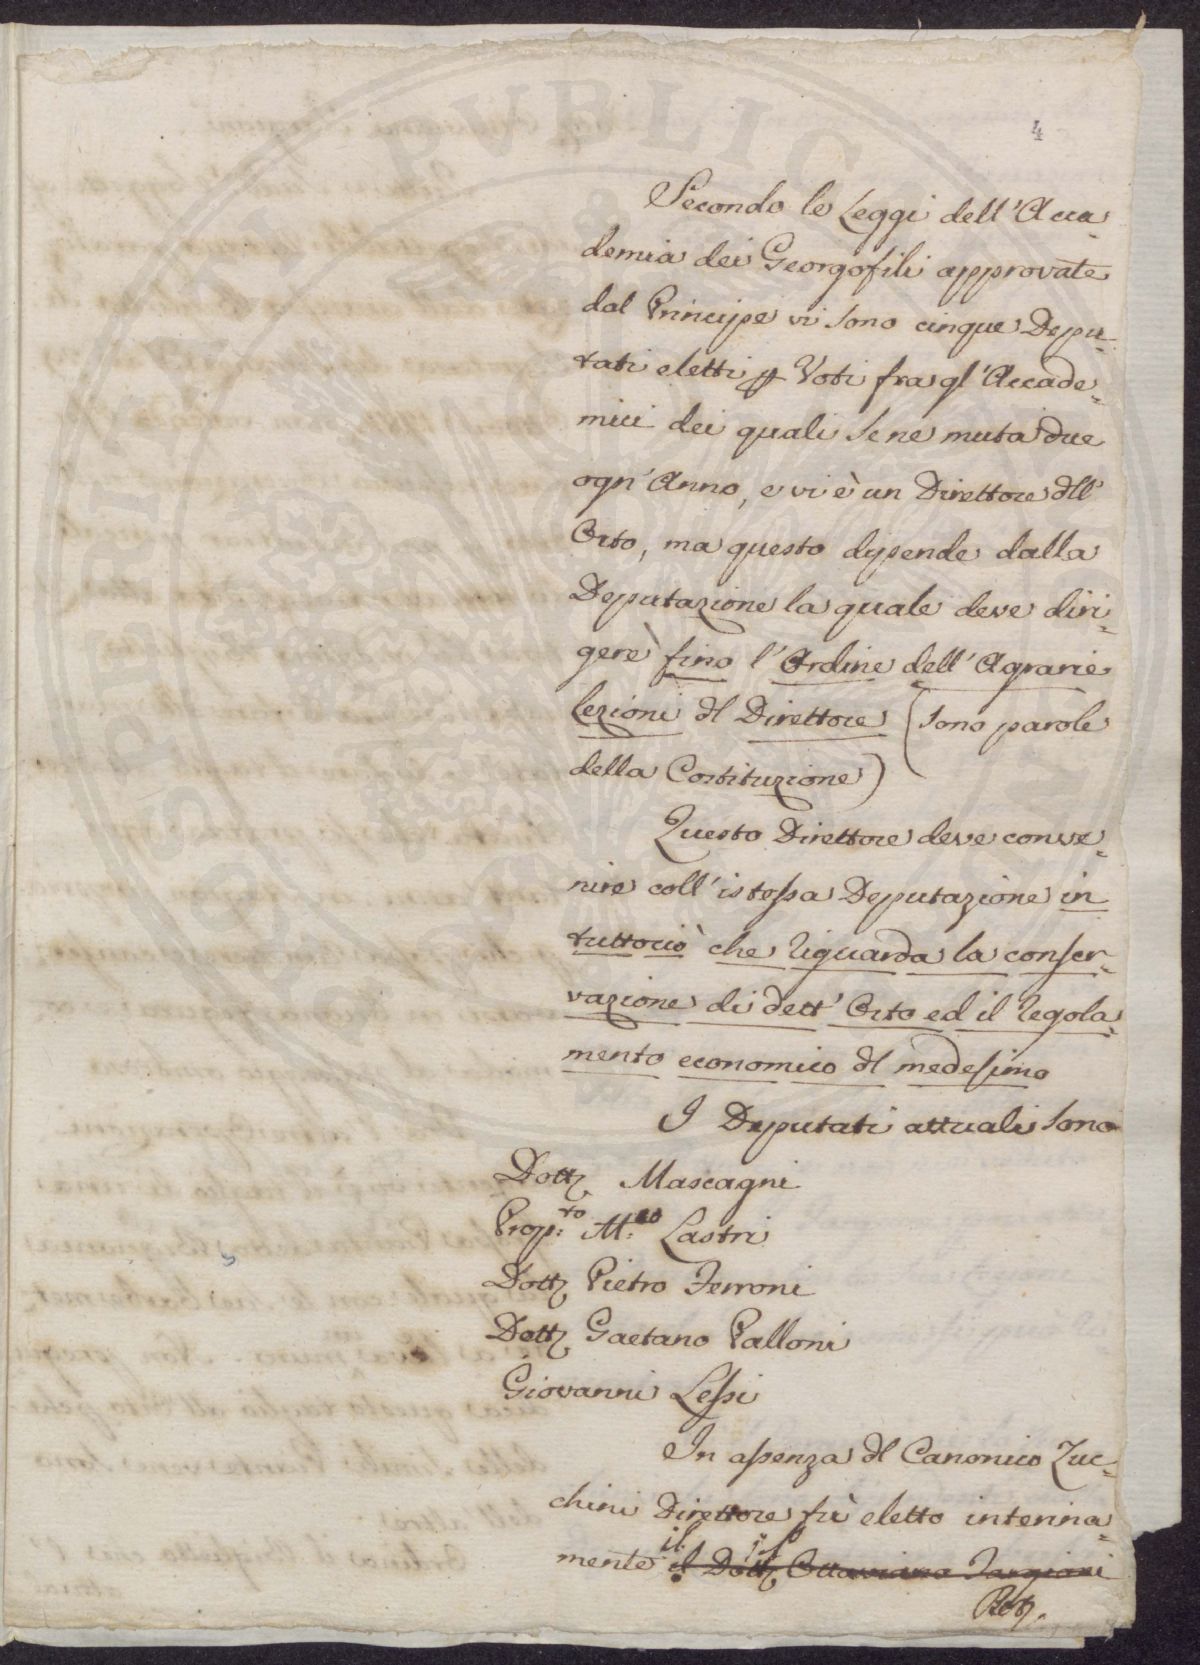 4
Secondo le Leggi dell'Acca=
demia dei Georgofili approvate
dal Principe vi sono cinque Depu=
tati eletti p Voti fra gl'Accade=
mici dei quali se ne muta due
ogn'Anno, e vi è un Direttore dll'
Orto, ma questo dipende dalla
Deputazione la quale deve diri=
gere fino l'Ordine dell'Agrarie
Lezioni dl Direttore (sono parole
della Costituzione)
Questo Direttore deve conve=
nire coll'istessa Deputazione in
tuttociò che riguarda la conser=
vazione di dett'Orto ed il regola=
mento economico dl medesimo
I Deputati attuali sono
Dott. Mascagni
Prop:to M:co Lastri
Dott. Pietro Ferroni
Dott. Gaetano Palloni
Giovanni Lessi
In assenza dl Canonico Zuc=
chini Direttore fù eletto interina=
mente il Dott. Ottaviano Targioni
il